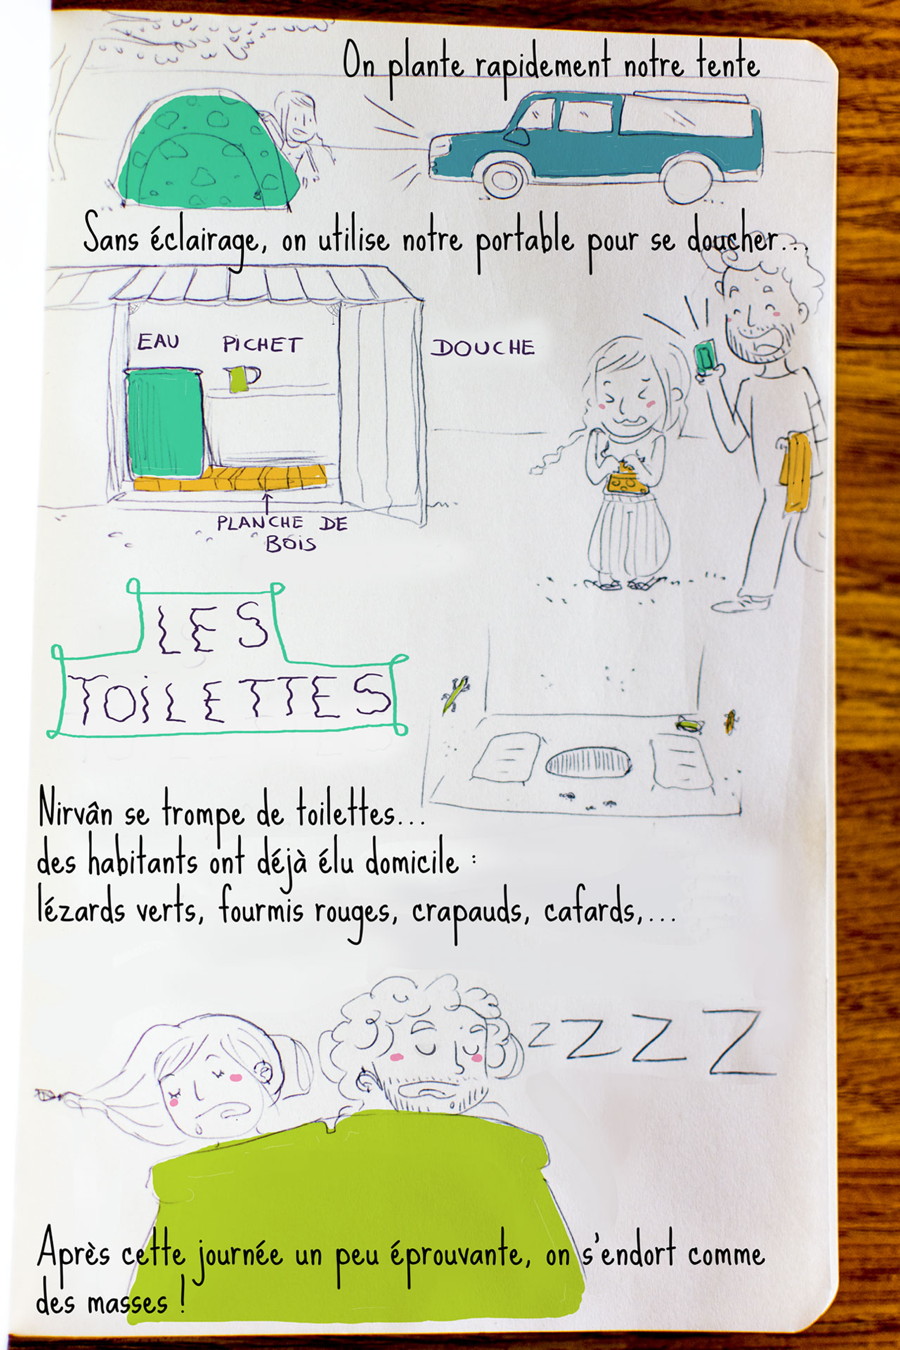 On plante rapidement notre tente
Sans éclairage, on utilise notre portable pour se doucher...
EAU
PICHET
DOUCHE
PLANCHE DE
BOIS
LES
TOILETTES
Nirvân se trompe de toilettes...
des habitants ont déjà élu domicile :
lézards verts, fourmis rouges, crapauds, cafards,...
ZZZZ
Après cette journée un peu éprouvante, on s'endort comme
des masses !